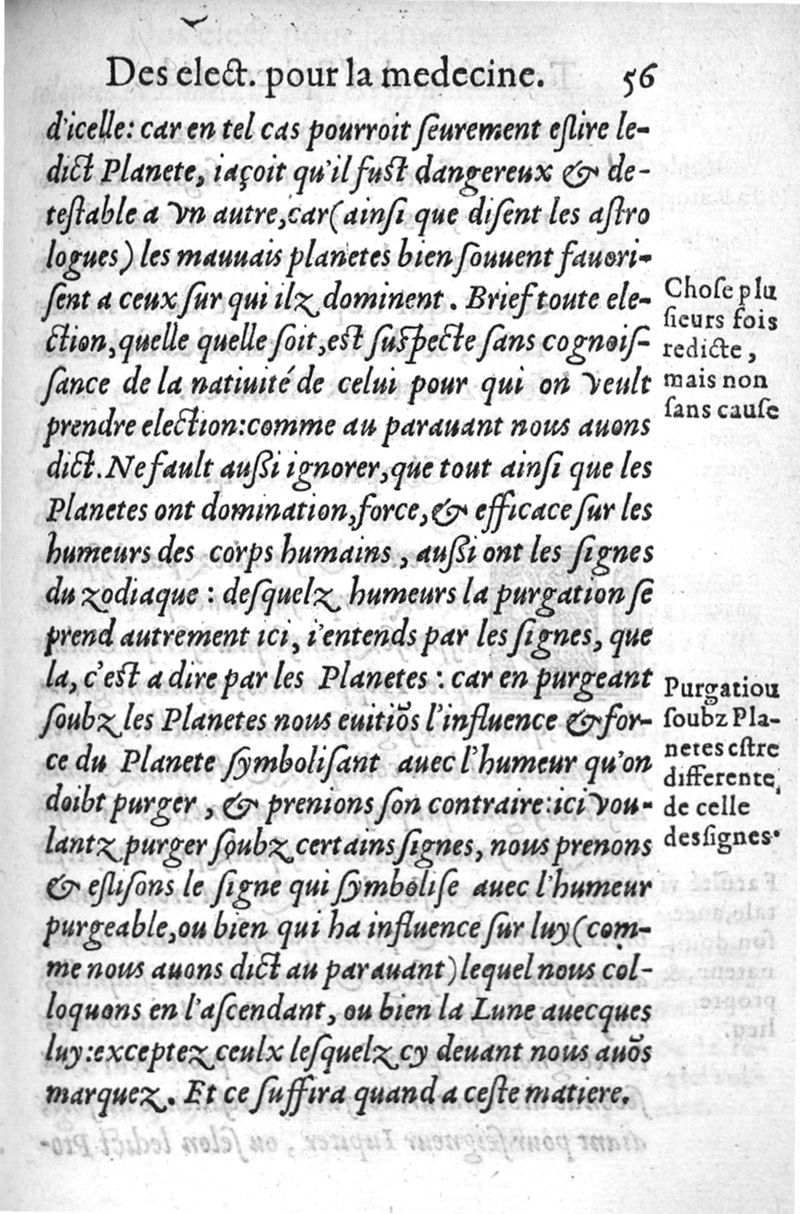 Des elect. pour la medecine. 56
d'icelle: car en tel cas pourroit ſeurement eſlire le-
dict Planete, iaçoit qu'il fuſt dangereux & de-
teſtable a vn autre, car (ainſi que diſent les aſtro
logues) les mauuais planetes bien ſouuent fauori-
ſent a ceux ſur qui ilz dominent. Brief toute ele-
ction, quelle quelle ſoit, eſt ſuſpecte ſans cognoiſ-
ſance de la natiuité de celui pour qui on veult
prendre election: comme au parauant nous auons
dict. Ne fault auſſi ignorer, que tout ainſi que les
Planetes ont domination, force, & efficace ſur les
humeurs des corps humains, auſſi ont les ſignes
du zodiaque: deſquelz humeurs la purgation ſe
prend autrement ici, i'entends par les ſignes, que
la, c'eſt a dire par les Planetes: car en purgeant
ſoubz les Planetes nous euitiõs l'influence & for-
ce du Planete ſymboliſant auec l'humeur qu'on
doibt purger, & prenions ſon contraire: ici vou-
lantz purger ſoubz certains ſignes, nous prenons
& eſliſons le ſigne qui ſymboliſe auec l'humeur
purgeable, ou bien qui ha influence ſur luy (com-
me nous auons dict au parauant) lequel nous col-
loquons en l'aſcendant, ou bien la Lune auecques
luy: exceptez ceulx leſquelz cy deuant nous auõs
marquez. Et ce ſuffira quand a ceſte matiere.
Choſe plu
ſieurs fois
redicte,
mais non
ſans cauſe
Purgatiou
ſoubz Pla-
netes eſtre
differente,
de celle
des ſignes.